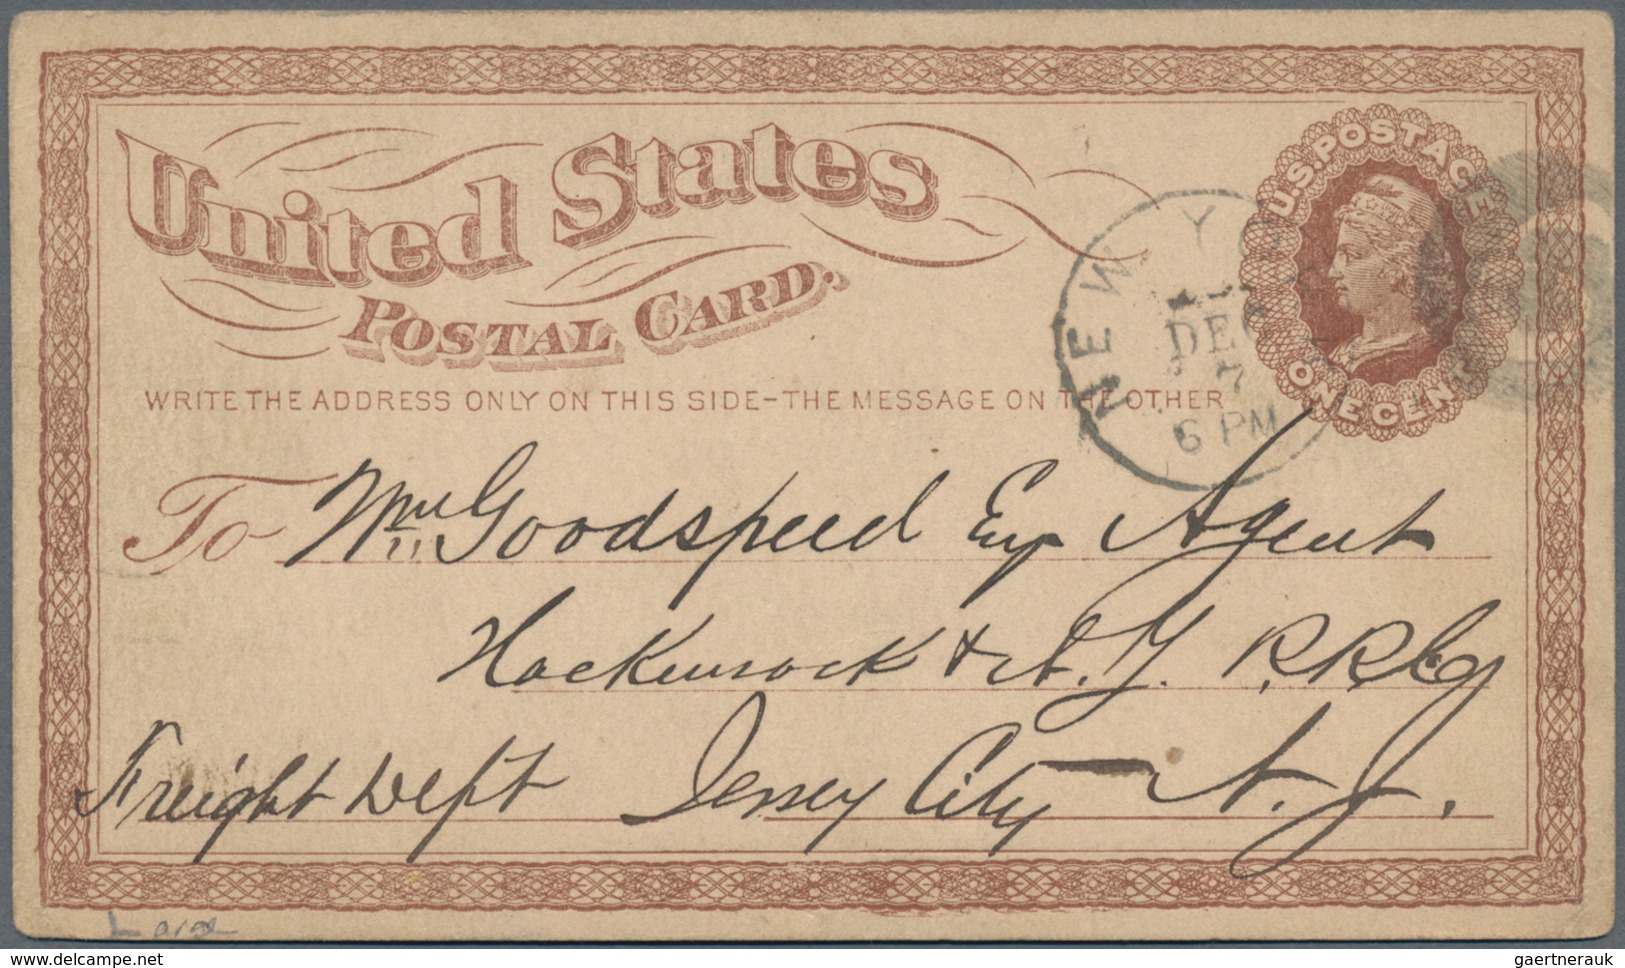 United States
POSTAL CARD.
U.S. POSTAGE
ONE CENT
NEW Y
DEC
7
6 PM
WRITE THE ADDRESS ONLY ON THIS SIDE-THE MESSAGE ON THE OTHER
To Wm Goodspeed Esq Agent
Hackensack & N. Y. R.R. Co
Freight Dept Jersey City N. J.
Large
delcampe.net
gaertnerauk